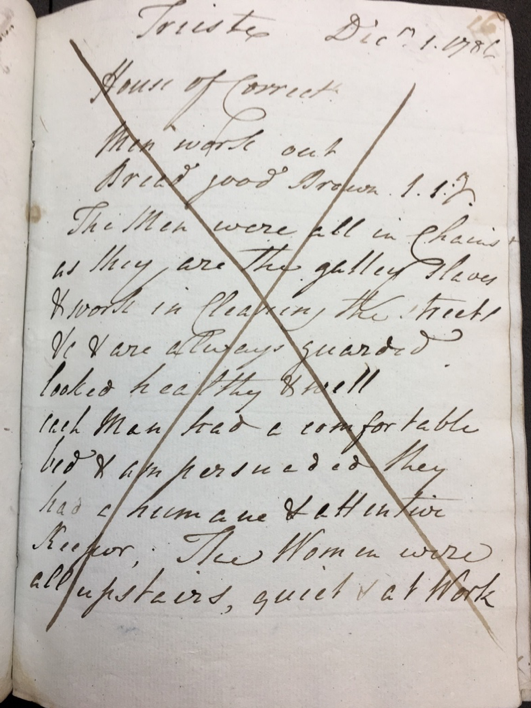 16
Trieste Dec.r 1. 1786
House of Correct.
Men work out
Bread good Brown.
The Men were all in Chains
as they are the galley Slaves
& work in Cleaning the streets
&c & are always guarded
looked healthy & well
each Man had a comfortable
bed & am persuaded they
had a humane & attentive
Keeper; The Women were
all upstairs, quiet & at Work